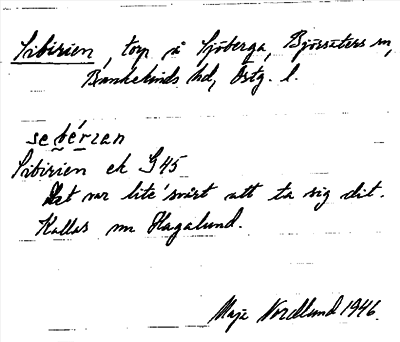 Sibirien, torp å Sjöberga, Björsäters sn,
Bankekinds hd, Östg. l.
sebérian
Sibirien ek S 45
Det var lite svårt att ta sig dit.
Kallas nu Hagalund.
Maja Nordlund 1946.